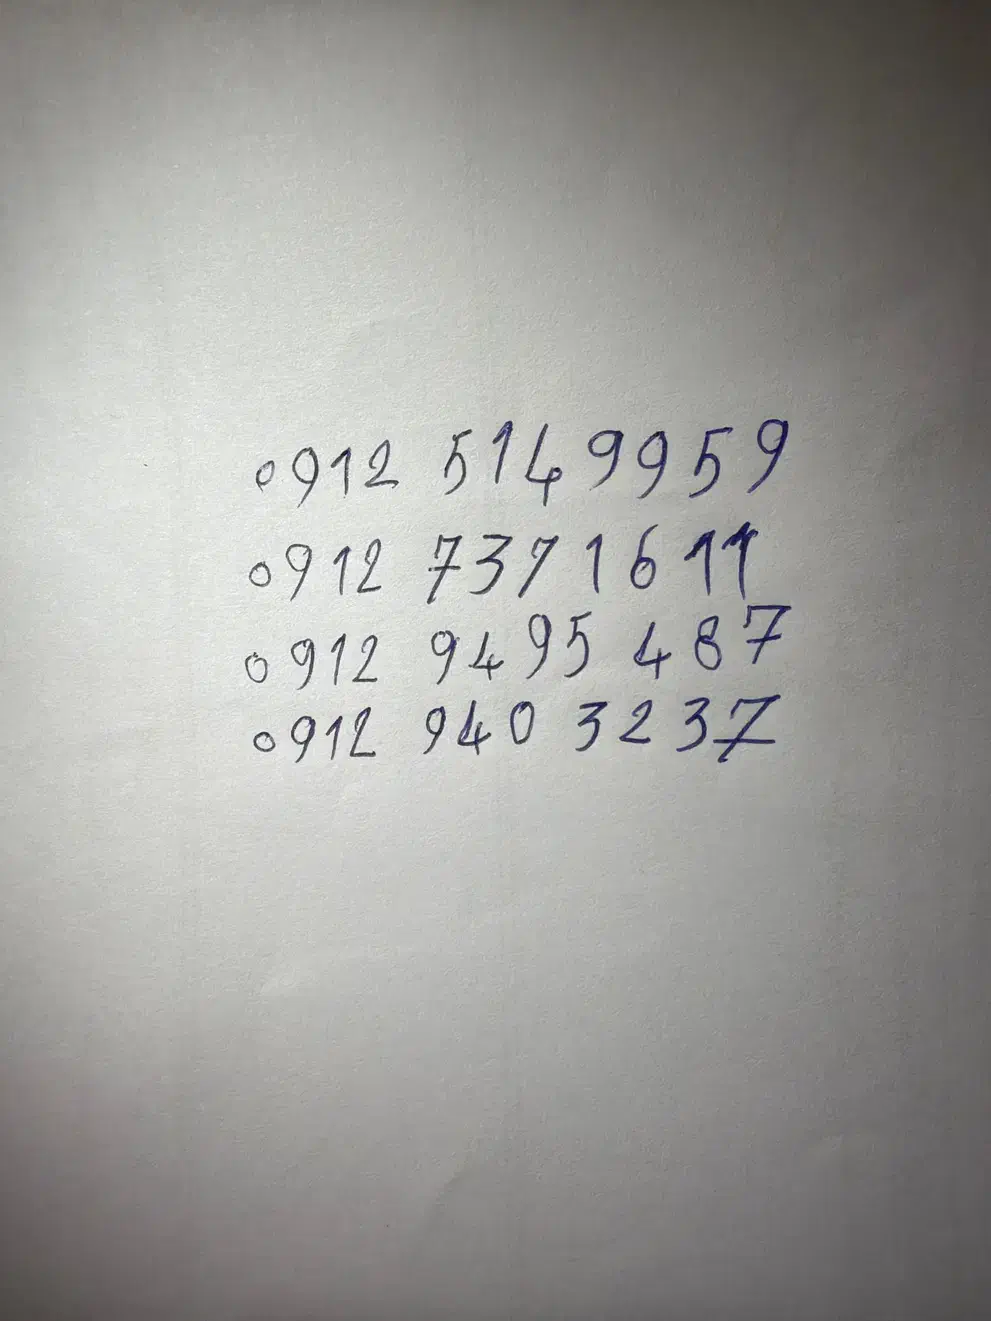 0912 5149959
0912 7371611
0912 9495 487
0912 940 3237